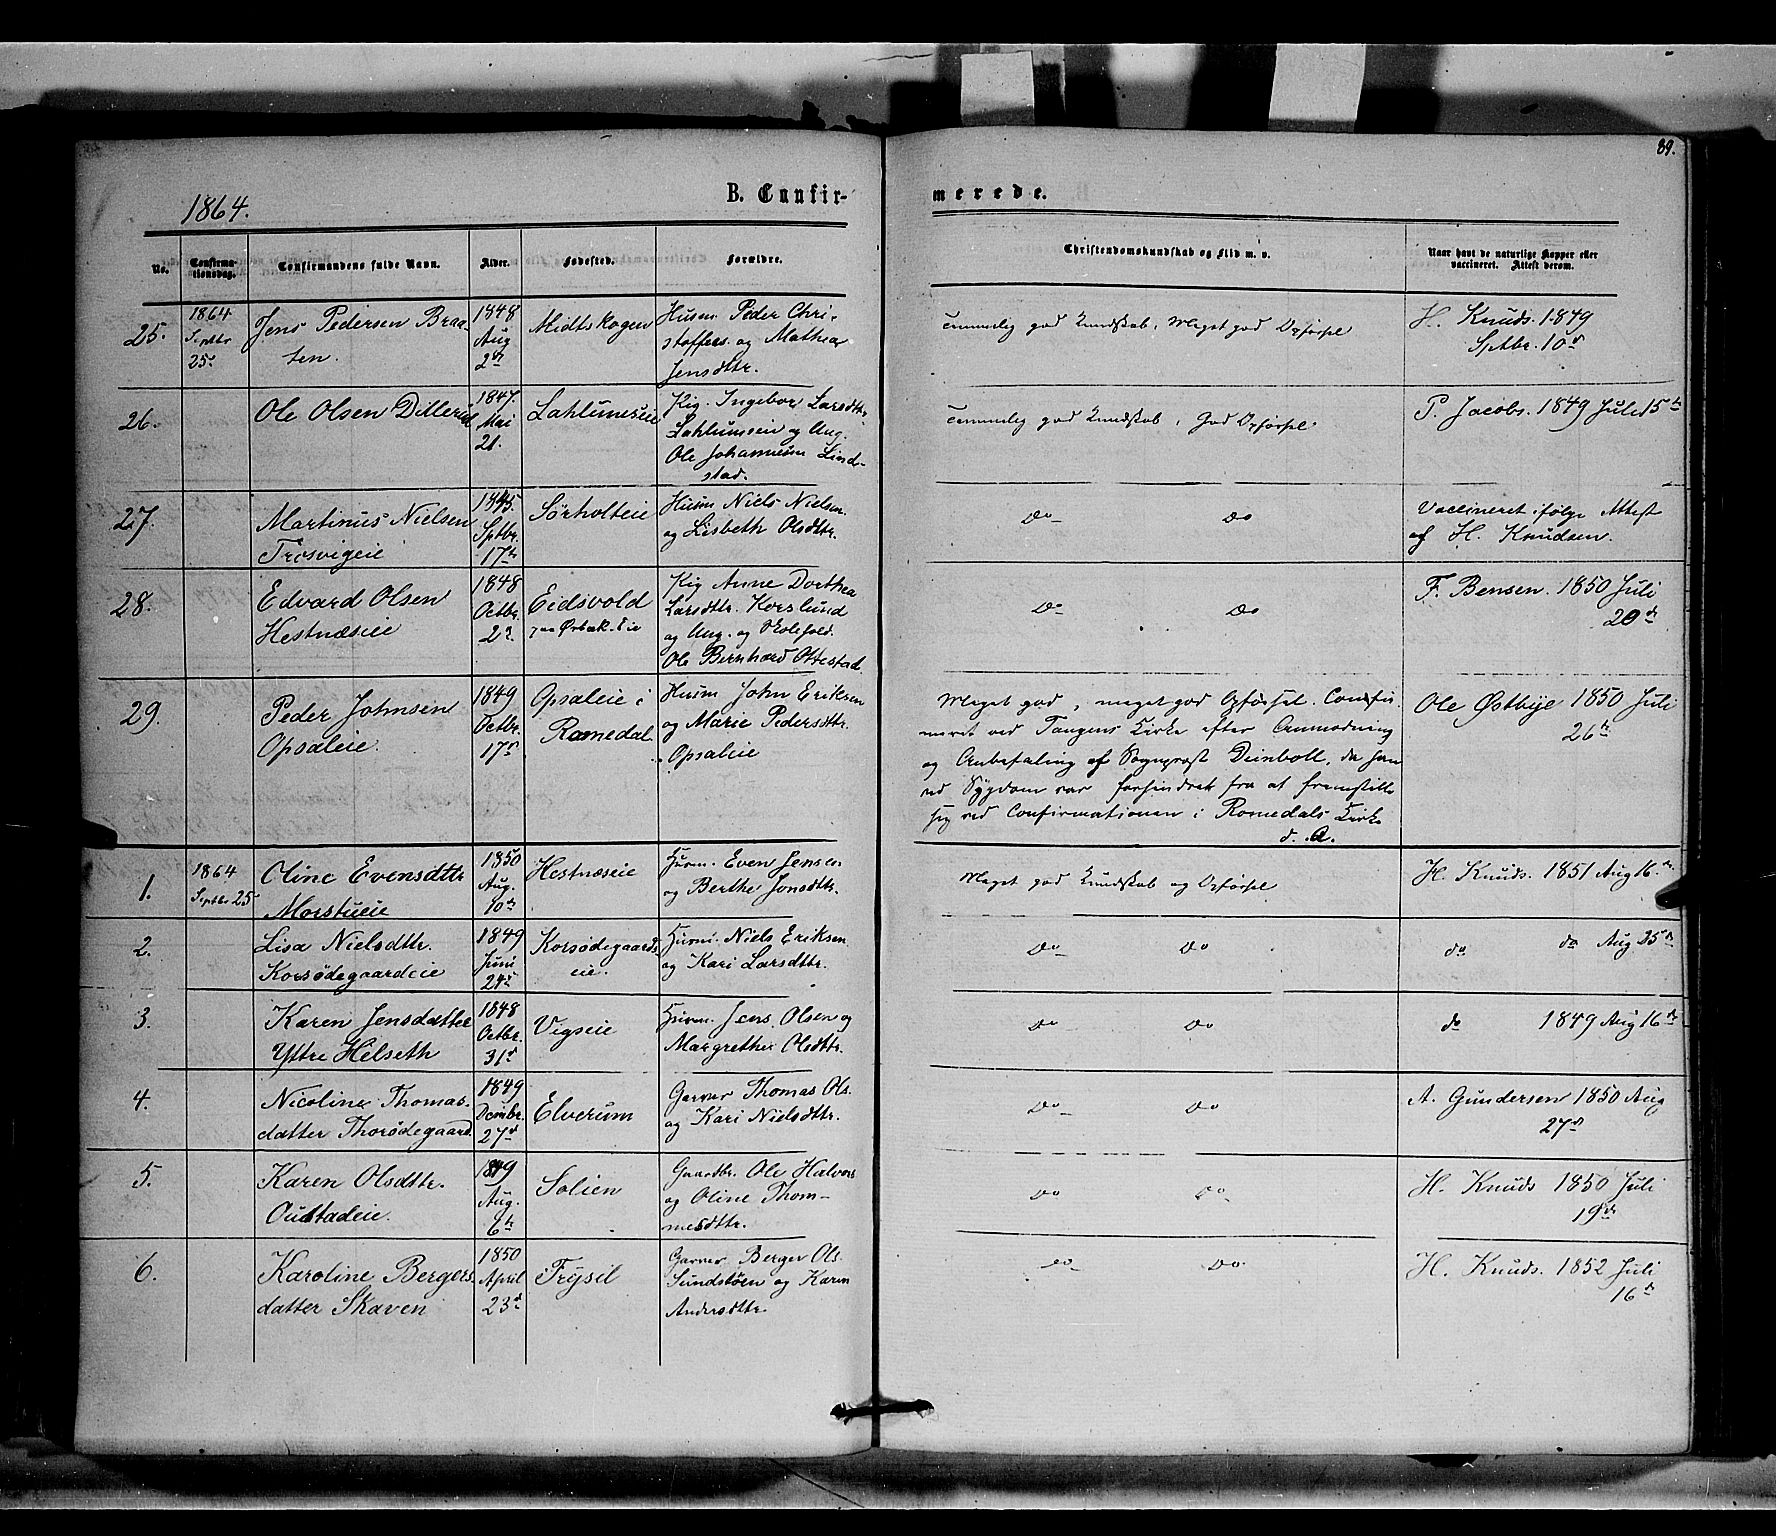 89.
1864.
B. Confir-
merede.
No.
Confirma-
tionsdag.
Confirmandens fulde Navn.
Alder.
Fødested.
Forældre.
Christendomskundskab og Flid m. v.
Naar havt de naturlige Kopper eller
vaccineret. Attest derom.
25.
1864
Septbr
25d
Jens Pedersen Braa-
ten.
1848
Aug
2d
Midtskogen
Husm Peder Chri-
stoffers. og Mathea
Jensdttr.
Temmelig god Kundskab, Meget god Opførsel
H. Knuds. 1849
Sptbr. 10d
26.
Ole Olsen Dillerud
1847.
Mai
21.
Lahlumseie
Pig. Ingebor Larsdttr.
Lahlumseie og Ung.
Ole Johannesen Lind-
stad.
Temmelig god Kundskab, God Opførsel.
P. Jacobs. 1849 Juli 15de
27.
Martinus Nielsen
Trosvigeie
1845.
Sptbr.
17de
Sørholteie
Husm Niels Nielsen
og Lisbeth Olsdttr.
Do Do
Vaccineret ifølge Attest
af H. Knudsen.
28.
Edvard Olsen
Hestnæseie
1848
Octbr.
22.
Eidsvold
Pig Anne Dorthea
Larsdttr. Korslund
og Ung. og
Ole Bernhard Ottestad
Do Do
F. Bensen. 1850 Juli
20d
29.
Peder Johnsen
Opsaleie.
1849
Octbr.
17d
Opsaleie i
Romedal
Husm John Eriksen
og Marie Pedersdttr.
Opsaleie
Meget god, meget god Opførsel. Confir-
meret ved Tangens Kirke efter Anmodning
og Anbefaling af Sognprest Deinboll, da han
ved Sygdom var forhindret fra at fremstille
sig ved Confirmationen i Romedals Kirke
d. A.
Ole Østbye 1850 Juli
26de
1.
1864
Septbr 25
Oline Evensdttr
Morstueie
1850
Aug.
10de
Hestnæseie
Husm. Even Jensen
og Berthe Jonsdttr.
Meget god Kundskab og Opførsel
H. Knuds. 1851 Aug 16.de
2.
Lisa Nielsdttr.
Korsødegaardeie
1849
Juni
24d
Korsødegaards
eie.
Husm. Niels Eriksen
og Kari Larsdttr.
Do Do
do do Aug 25d
3.
Karen Jensdatter
Yttre Helseth
1848
Octbr.
31d
Vigseie
Husm. Jens Olsen og
Margrethe Olsdttr.
Do Do
do 1849 Aug 16d
4.
Nicoline Thomas-
datter Thorødegaard.
1849
Decmbr.
27d
Elverum
Garver Thomas Ols.
og Kari Nielsdttr.
Do Do
A. Gundersen 1850 Aug
27d
5.
Karen Olsdttr.
Oustadeie.
1849
Aug.
6te
Solien
Gaardbr. Ole Halvors
og Oline Thom-
mesdttr.
Do Do
H. Knuds 1850 Juli
19de
6.
Karoline Bergers-
datter Skaven
1850
April
23d
Trysil
Garver Berger Ols.
Sundstøen og Karen
Andersdttr.
Do Do
H. Knuds. 1852 Juli
16d